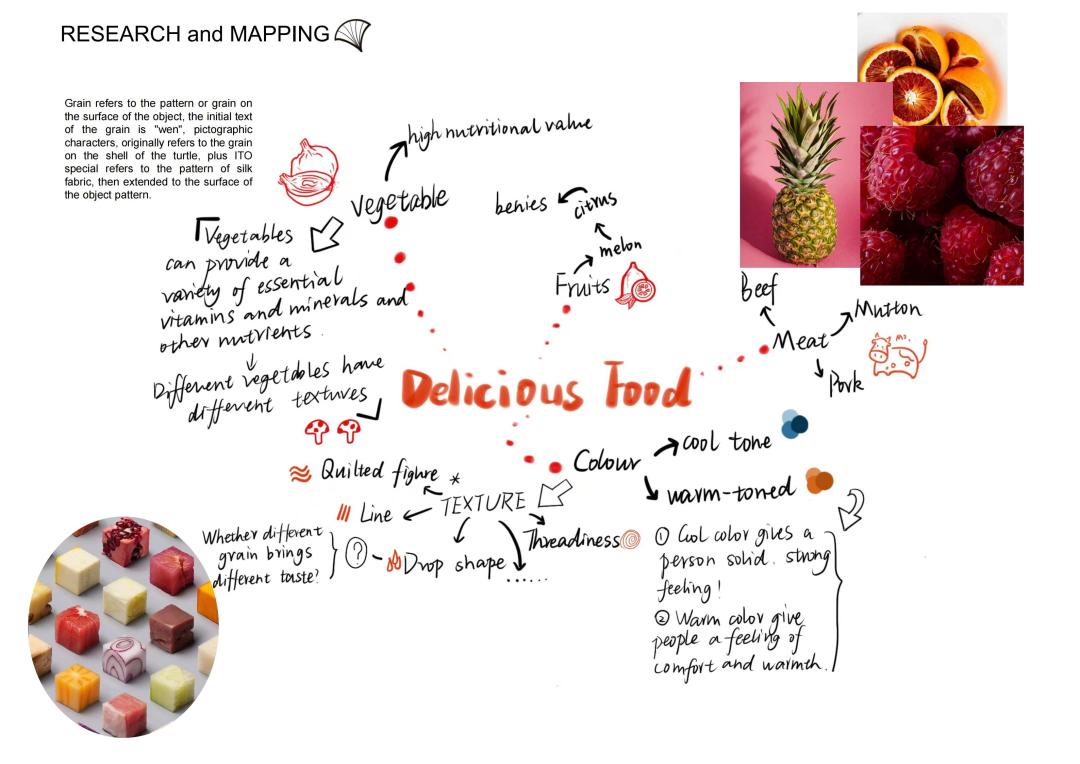 RESEARCH and MAPPING
Grain refers to the pattern or grain on
the surface of the object, the initial text
of the grain is "wen", pictographic
characters, originally refers to the grain
on the shell of the turtle, plus ITO
special refers to the pattern of silk
fabric, then extended to the surface of
the object pattern.
high nutritional value
vegetable
Vegetables
can provide a
variety of essential
vitamins and minerals and
other nutrients.
Different vegetables have
different textures
benies
citrus
melon
Fruits
Beef
Mutton
Meat
Mo.
Pork
Delicious Food
Colour
cool tone
warm-toned
Quilted fighre *
TEXTURE
Line
Threadiness
Drop shape
......
Whether different
grain brings
different taste?
?
① Cool color gives a
person solid. strong
feeling!
② Warm color give
people a feeling of
comfort and warmth.